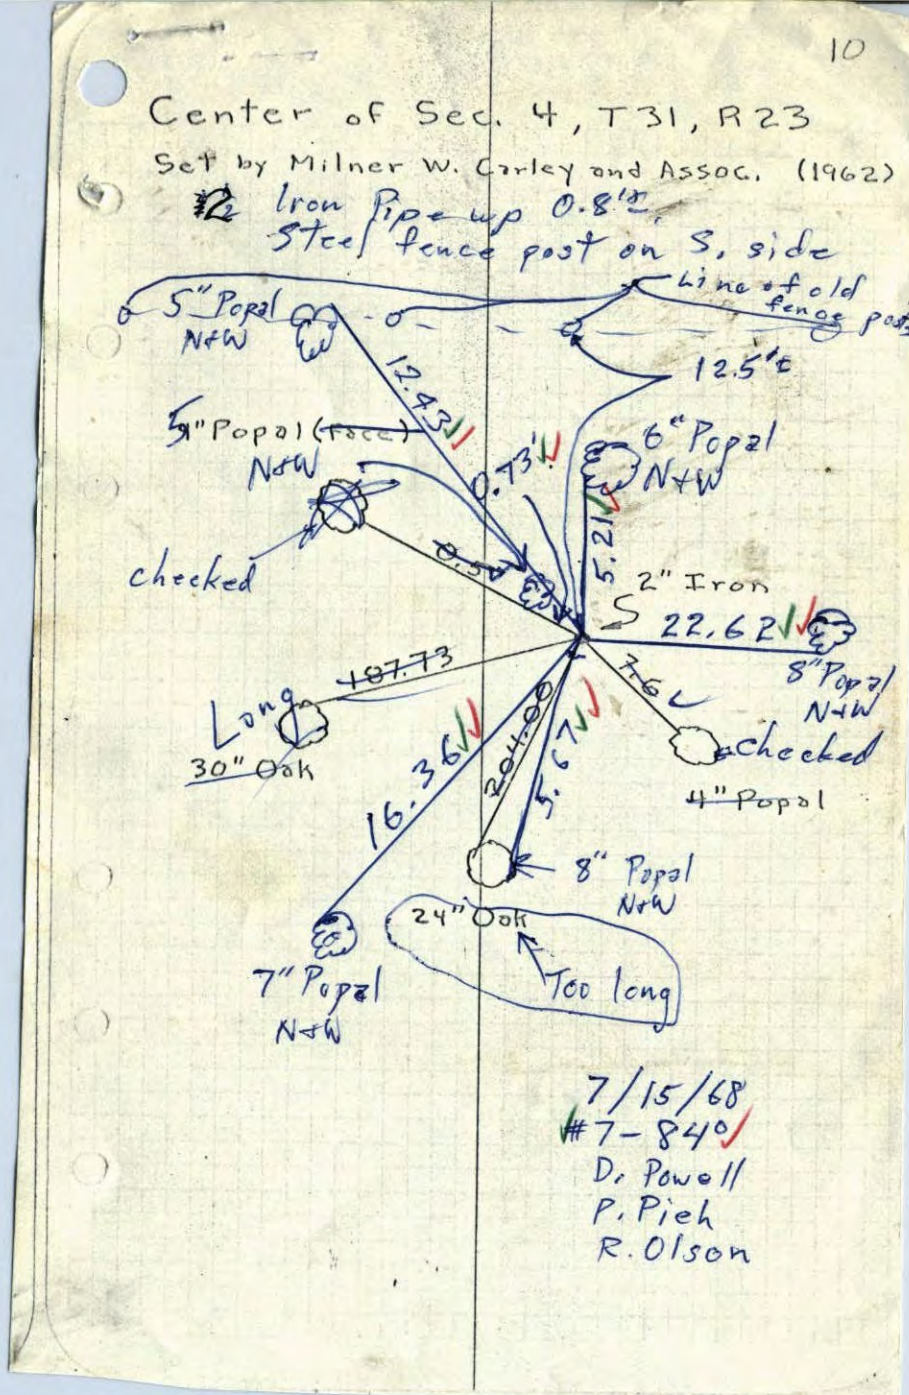 10
Center of Sec. 4, T31, R23
Set by Milner W. Carley and Assoc. (1962)
2" Iron Pipe up 0.8'±.
Steel fence post on S. side
Line of old
fence posts
5" Popal
N+W
12.5'±
12.43
5" Popal (Face)
N+W
0.73'
6" Popal
N+W
5.21
checked
0.5
2" Iron
22.62
8" Popal
N+W
187.73
7.6
Long
30" Oak
checked
4" Popal
16.36
204.00
5.67
8" Popal
N+W
24" Oak
Too long
7" Popal
N+W
7/15/68
#7-84°
D. Powell
P. Pieh
R. Olson